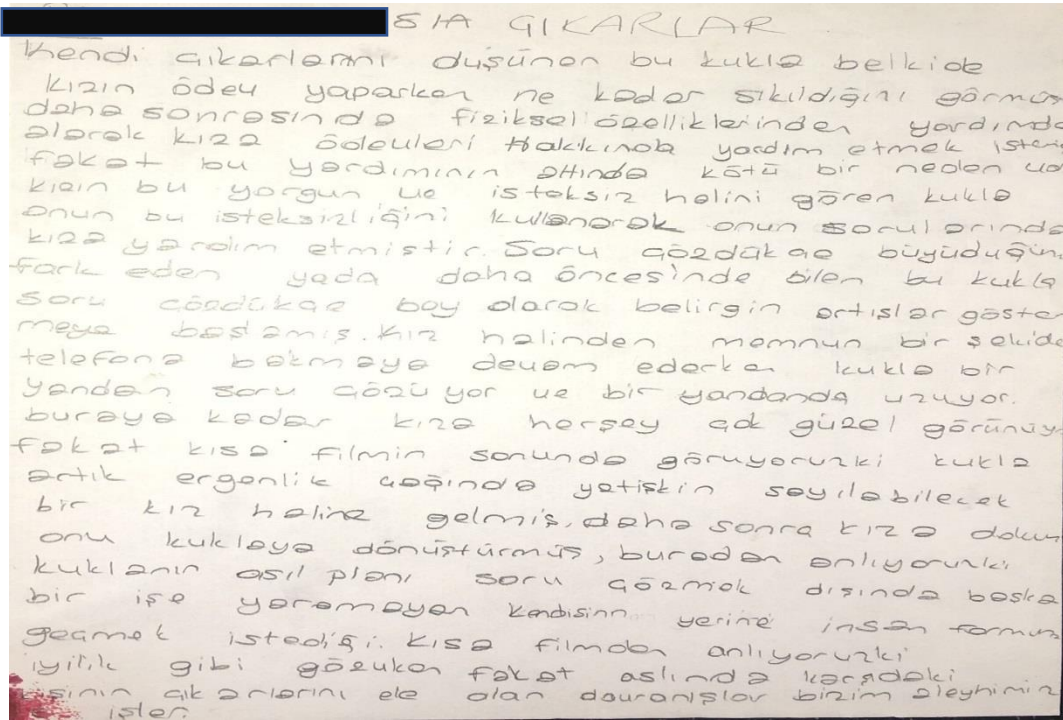 SIA ÇIKARLAR
Kendi çıkarlarını düşünen bu kukla belkide
kızın ödev yaparken ne kadar sıkıldığını görmüş
daha sonrasında fiziksel özelliklerinden yardımda
alarak kıza ödevleri Hakkında yardım etmek isteri
fakat bu yardımının altında kötü bir neden va
kızın bu yorgun ve isteksiz halini gören kukla
onun bu isteksizliğini kullanarak onun sorularında
kıza yardım etmiştir. Soru çözdükçe büyüduğün
fark eden yada daha öncesinde bilen bu kukla
soru çözdükçe boy olarak belirgin artışlar göste
meye başlamış. Kız halinden memnun bir şekide
telefona bakmaya devam ederken kukla bir
yandan soru çözüyor ve bir yandanda uzuyor.
buraya kadar kıza herşey çok güzel görünüy
fakat kısa filmin sonunda görüyoruzki kukla
artık ergenlik çağında yetişkin sayılabilecek
bir kız haline gelmiş, daha sonra kıza dokun
onu kuklaya dönüştürmüş, buradan anlıyoruzki
kuklanın asıl planı soru çözmek dışında başka
bir işe yaramayan kendisinn yerine insan formun
geçmek istediği. Kısa filmden anlıyoruzki
iyilik gibi gözüken fakat aslında karşıdaki
sinin çıkarlarını ele alan davranışlar bizim aleyhimiz
işler.